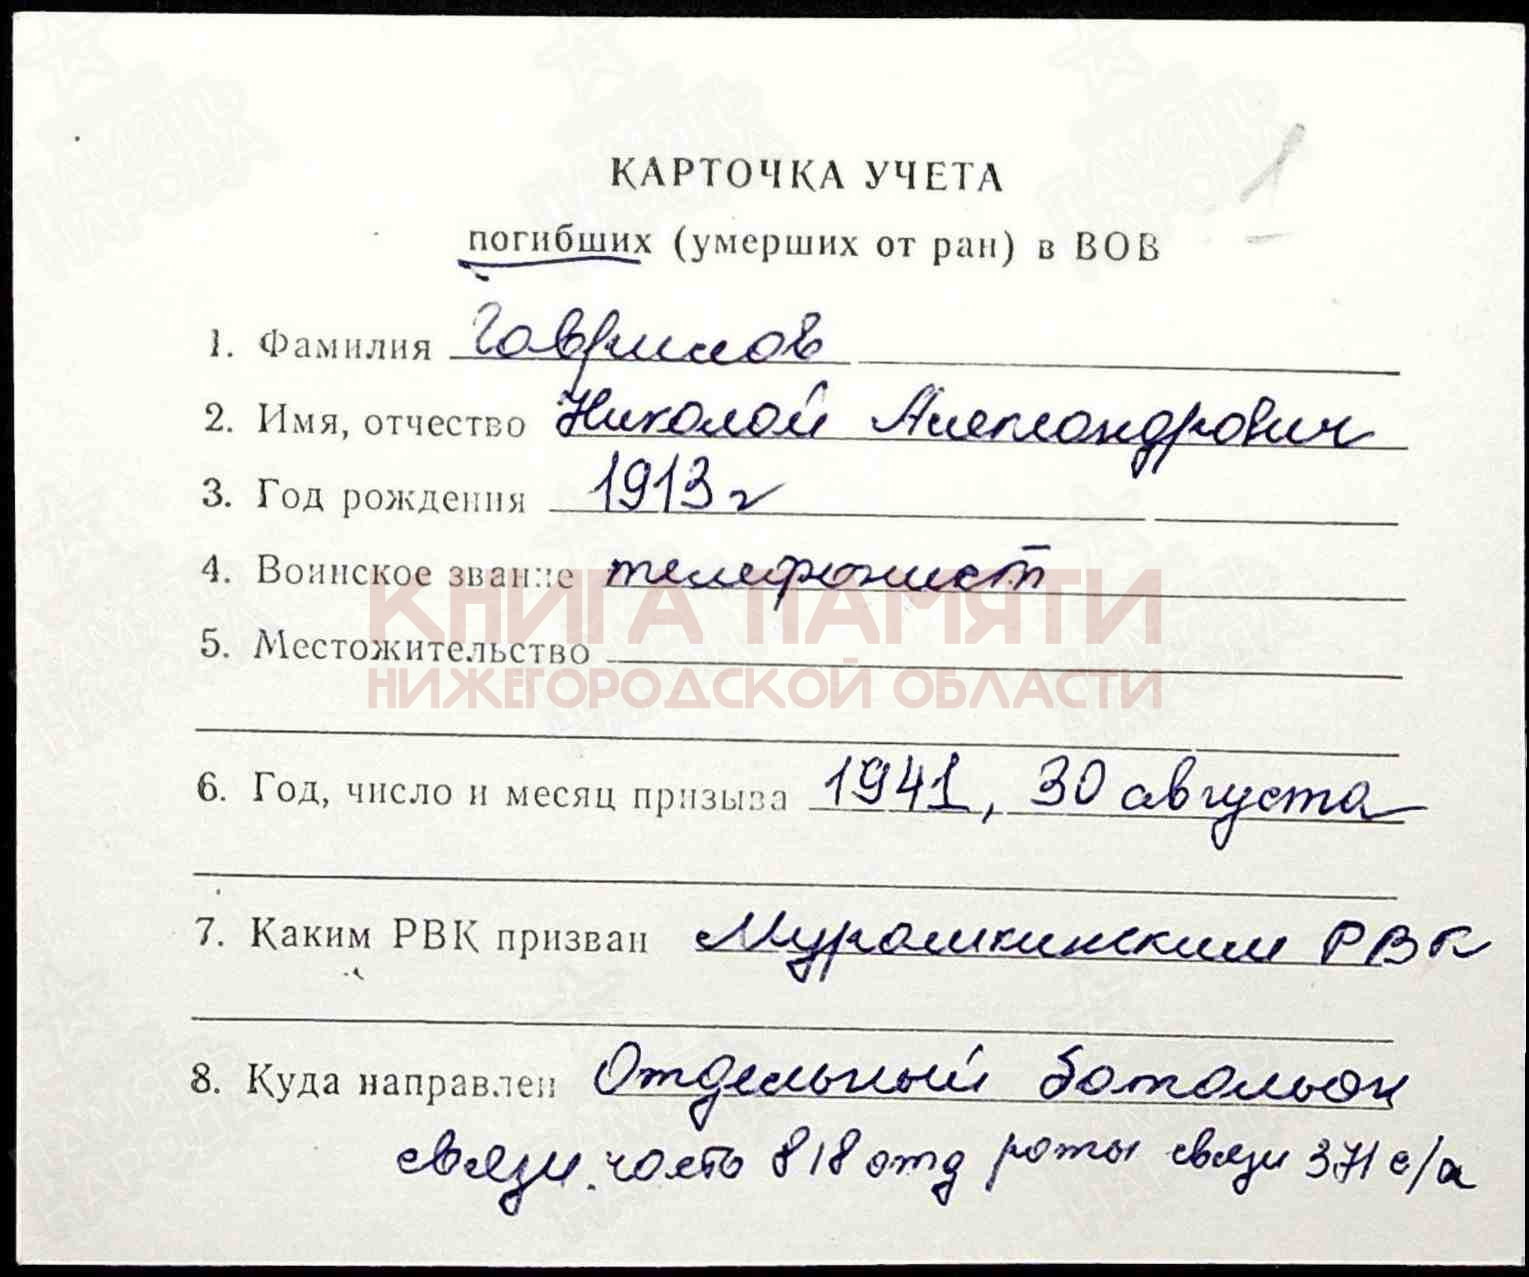 КАРТОЧКА УЧЕТА
погибших (умерших от ран) в ВОВ
1. Фамилия Гаврилов
2. Имя, отчество Николай Александрович
3. Год рождения 1913 г
4. Воинское звание телефонист
КНИГА ПАМЯТИ
5. Местожительство
НИЖЕГОРОДСКОЙ ОБЛАСТИ
6. Год, число и месяц призыва 1941, 30 августа
7. Каким РВК призван Мурашкинским РВК
8. Куда направлен Отдельный батальон
связи. часть 818 отд роты связи 371 с/д